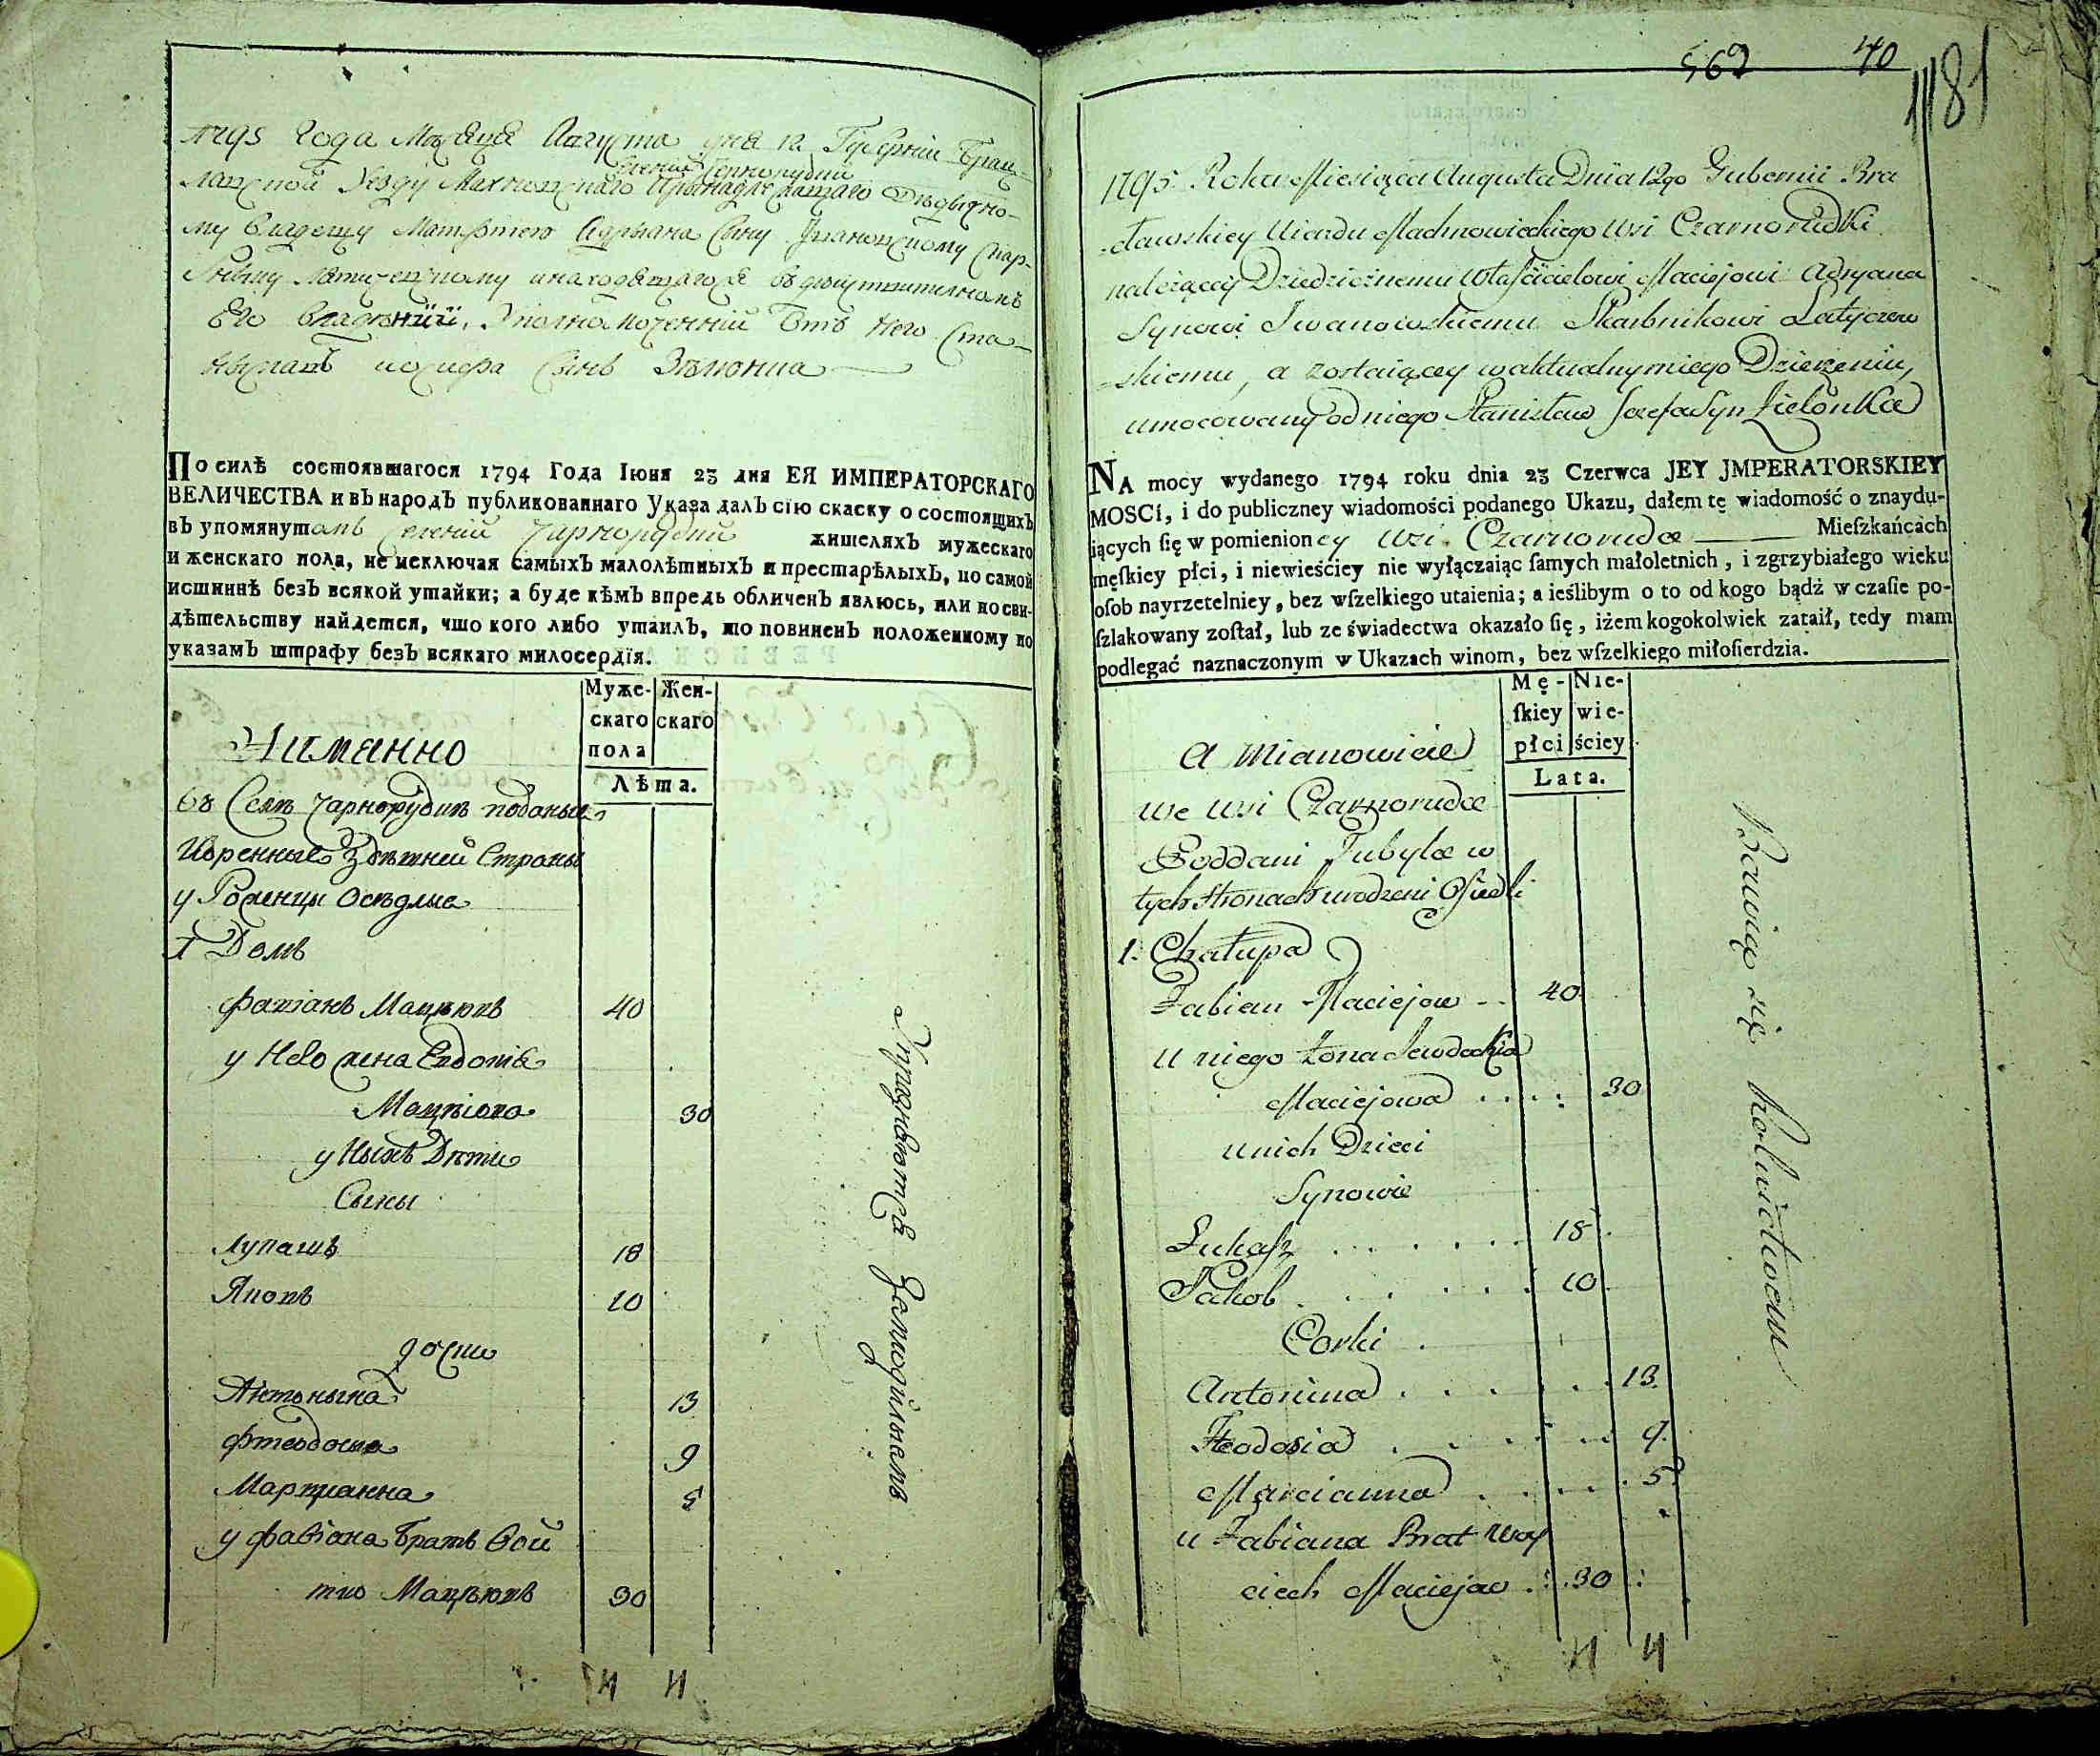 1795 года Месяца Августа дня 12 Губерніи Брац-
лавской Уезду Махновскаго Принадлежащаго Дедычно-
селений Чернорудки
му Владелцу Матфіею Адрыана Сыну Ивановскому Скар-
бнику Лятичевскому инаходящагося въ действителномъ
Его владѣніи, Уполномоченній отъ Него Ста-
ниславъ иосифа Сынъ Зѣлионка
По силѣ состоявшагося 1794 Года Iюня 23 дня ЕЯ ИМПЕРАТОРСКАГО
ВЕЛИЧЕСТВА и въ народъ публикованнаго Указа далъ сїю скаску о состоящихъ
въ упомянутомъ селений Чарнорудки жителяхъ мужескаго
и женскаго пола, не исключая самыхъ малолѣтныхъ и престарѣлыхъ, по самой
истиннѣ безъ всякой утайки; а буде кѣмъ впредь обличенъ явлюсь, или по сви-
дѣтельству найдется, что кого либо утаилъ, то повиненъ положенному по
указамъ штрафу безъ всякаго милосердїя.
Муже-
скаго
пола
Жен-
скаго
Лѣта.
Аимянно
въ Селѣ Чарнорудкѣ поданые
Икренные Здѣшней Страны
уроженцы осѣдлые
1 Домъ
Фабіанъ Мацѣювъ 40
у Него жена Евдокія
Мацѣіова 30
у Ныхъ Дѣти
Сыны
Лукашъ 18
Яковъ 10
дочки
Антонына 13
Фтеодосия 9
Марцианна 5
у Фабіана братъ Вой
тко Мацѣювъ 30
Упражняются Земледѣліемъ
562 40
1181
1795. Roku Miesiąca Augusta Dnia 12go Gubernii Bra
-cławskiey Uiazdu Machnowieckiego Wsi Czarnorudki
należącey Dziedzicznemu Właścicielowi Maciejowi Adryana
Synowi Iwanowskiemu Skarbnikowi Latyczew
-skiemu, a zostaiącey w aktualnym iego Dzierżeniu,
umocowany od niego Stanisław Jozefa Syn Zielonka
NA mocy wydanego 1794 roku dnia 23 Czerwca JEY JMPERATORSKIEY
MOSCi, i do publiczney wiadomości podanego Ukazu, dałem tę wiadomość o znaydu-
iących ſię w pomienioney Wsi Czarnorudce Mieſzkańcach
męſkiey płci, i niewieściey nie wyłączaiąc ſamych małoletnich, i zgrzybiałego wieku
oſob nayrzetelniey, bez wſzelkiego utaienia; a ieślibym o to od kogo bądź w czaſie po-
ſzlakowany zoſtał, lub ze świadectwa okazało ſię, iżem kogokolwiek zataił, tedy mam
podlegać naznaczonym w Ukazach winom, bez wſzelkiego miłoſierdzia.
Mę-
ſkiey
płci
Nie-
wie-
ściey
Lata.
A Mianowicie
we wsi Czarnorudce
Poddani Tubylce w
tych stronach urodzeni Osiedli
1. Chałupa
Fabian Maciejow 40
U niego Żona Jewdockia
Maciejowa 30
u nich Dzieci
Synowie
Łukasz 18
Jakob 10
Corki
Antonina 13
Fteodosia 9
Marcianna 5
u Fabiana Brat Woy
ciech Maciejow 30
Bawią się Rolnictwem